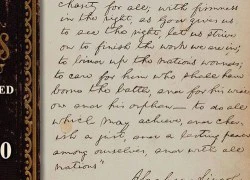 charity for all; with firmness
in the right, as God gives us
to see the right, let us strive
on to finish the work we are in;
to bind up the nations wounds;
to care for him who shall have
borne the battle, and for his widow
and his orphan to do all
which may achieve, and cherish
a just, and a lasting peace
among ourselves, and with all
nations"
Abraham Lincoln
ED
0